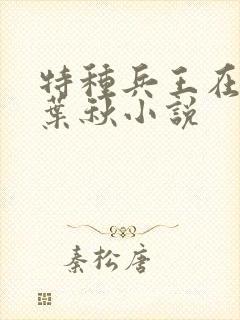 特種兵王在
葉秋小說
秦松唐